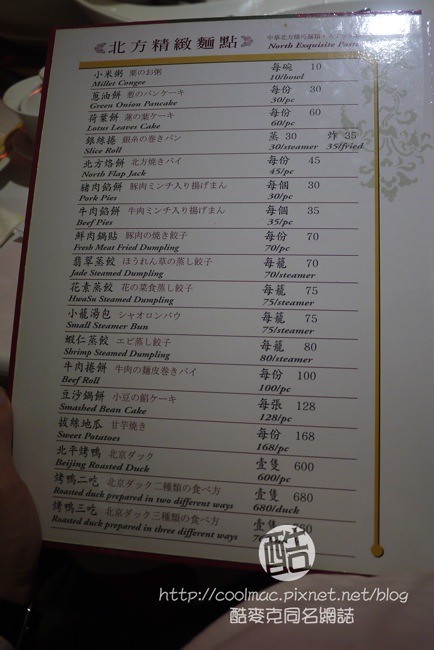 北方精緻麵點
North Exquisite Pastr
小米粥 粟のお粥 每碗 10
Millet Congee 10/bowl
蔥油餅 葱のパンケーキ 每份 30
Green Onion Pancake 30/pc
荷葉餅 蓮の葉ケーキ 每份 60
Lotus Leaves Cake 60/pc
銀絲捲 銀糸の巻きパン 蒸 30 炸 35
Slice Roll 30/steamer 35/fried
北方烙餅 北方焼きパイ 每份 45
North Flap Jack 45/pc
豬肉餡餅 豚肉ミンチ入り揚げまん 每個 30
Pork Pies 30/pc
牛肉餡餅 牛肉ミンチ入り揚げまん 每個 35
Beef Pies 35/pc
鮮肉鍋貼 豚肉の焼き餃子 每份 70
Fresh Meat Fried Dumpling 70/pc
翡翠蒸餃 ほうれん草の蒸し餃子 每籠 70
Jade Steamed Dumpling 70/steamer
花素蒸餃 花の菜食蒸し餃子 每籠 75
HwaSu Steamed Dumpling 75/steamer
小籠湯包 シャオロンパウ 每籠 75
Small Steamer Bun 75/steamer
蝦仁蒸餃 エビ蒸し餃子 每籠 80
Shrimp Steamed Dumpling 80/steamer
牛肉捲餅 牛肉の麺皮巻きパイ 每份 100
Beef Roll 100/pc
豆沙鍋餅 小豆の餡ケーキ 每張 128
Smashed Bean Cake 128/pc
拔絲地瓜 甘芋焼き 每份 168
Sweet Potatoes 168/pc
北平烤鴨 北京ダック 壹隻 600
Beijing Roasted Duck 600/pc
烤鴨二吃 北京ダック二種類の食べ方 壹隻 680
Roasted duck prepared in two different ways 680/duck
烤鴨三吃 北京ダック三種類の食べ方 壹隻 780
Roasted duck prepared in three different ways
酷
http://coolmac.pixnet.net/blog
酷麥克同名網誌